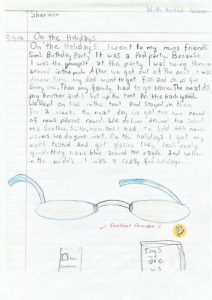 Sheridan
With initial
On the Holidays
On the Holidays I went to my mums friends
Son's Birthday Party. It was a Pool party. Because
I was the youngest at the party I was being thrown
around in the pool. After we got out of the pool I was
dinner time. my dad went to get fish and chips for
every one. Then my family had to go home. The next day
my brother and I put up the tent At the back yard.
We slept on in the tent and stayed in there
for a week. the next day we got the new round
of news papers round. We deliver around the
my brother, Sister, mum and I had to fold 465 news
papers we do great work. On the holidays I got my
eyes tested and got glasses. They look really
good they have blue around the aside and yellow
in the middle. I was a really fun holidays.
Excellent Sheridan
Toys
are
us